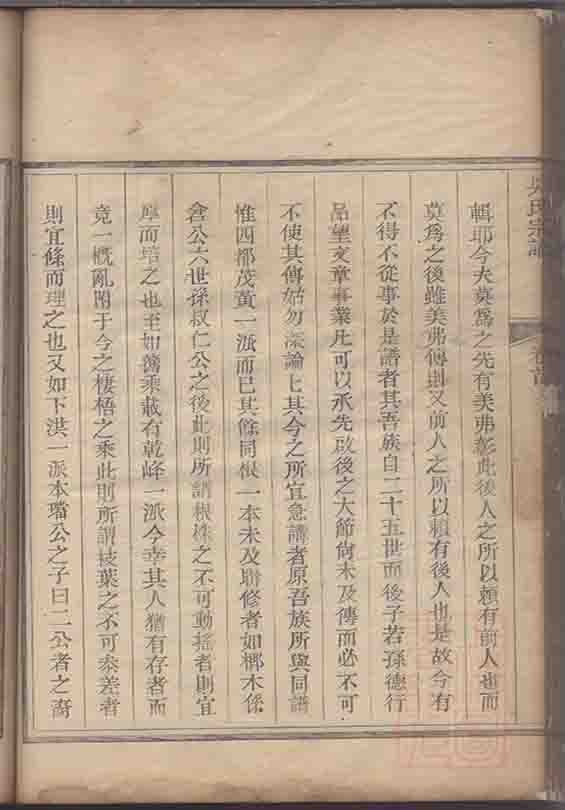 吳氏宗譜
卷首
輯耶今夫莫為之先有美弗彰此後人之所以賴有前人也而
莫為之後雖美弗傳則又前人之所以賴有後人也是故今有
不得不從事於是譜者其吾族自二十五世而後子若孫德行
品望文章事業凡可以承先啟後之大節尚未及傳而必不可
不使其傳姑勿深論七其今之所宜急講者原吾族所與同譜
惟四都茂黃一派而已其餘同根一本未及聯修者如梛木係
含公六世孫叔仁公之後此則所謂根株之不可動搖者則宜
厚而培之也至如舊乘載有乾峰一派今幸其人猶有存者而
竟一概亂閙于今之棲梧之乘此則所謂枝葉之不可泰差者
則宜條而理之也又如下洪一派本瑞公之子曰二公者之裔